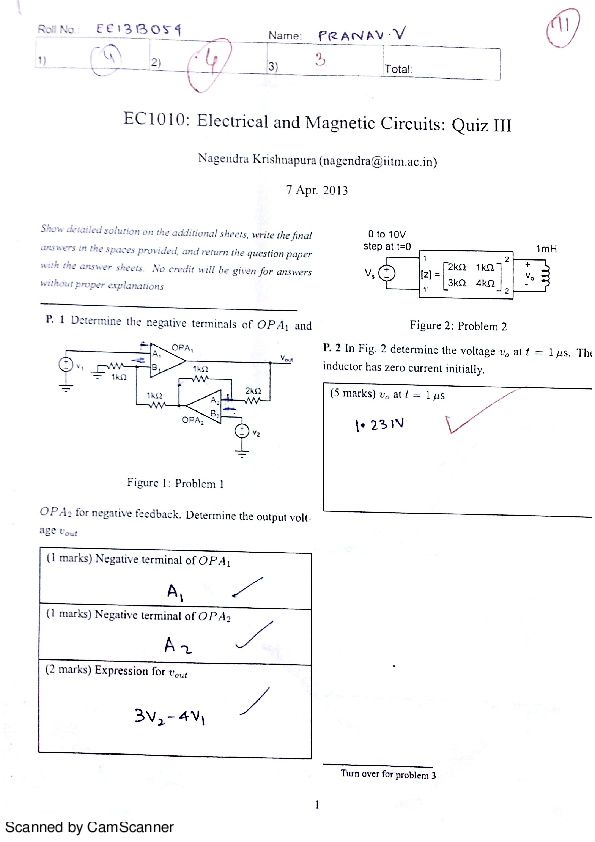 Roll No.: EE13B059 Name: PRANAV.V
11
1) 4 2) 4 3) 3 Total:
EC1010: Electrical and Magnetic Circuits: Quiz III
Nagendra Krishnapura (nagendra@iitm.ac.in)
7 Apr. 2013
Show detailed solution on the additional sheets, write the final
answers in the spaces provided, and return the question paper
with the answer sheets. No credit will be given for answers
without proper explanations
P. 1 Determine the negative terminals of OPA1 and
V1
1kΩ
A1
B1
OPA1
Vout
1kΩ
1kΩ
2kΩ
A2
B2
OPA2
V2
Figure 1: Problem 1
OPA2 for negative feedback. Determine the output volt-
age vout
(1 marks) Negative terminal of OPA1
A1
(1 marks) Negative terminal of OPA2
A2
(2 marks) Expression for vout
3V2-4V1
0 to 10V
step at t=0
Vs
1 2
[z] = 2kΩ 1kΩ
3kΩ 4kΩ
1' 2'
1mH
+
Vo
-
Figure 2: Problem 2
P. 2 In Fig. 2 determine the voltage vo at t = 1 µs. The
inductor has zero current initially.
(5 marks) vo at t = 1 µs
1.231V
Turn over for problem 3
1
Scanned by CamScanner